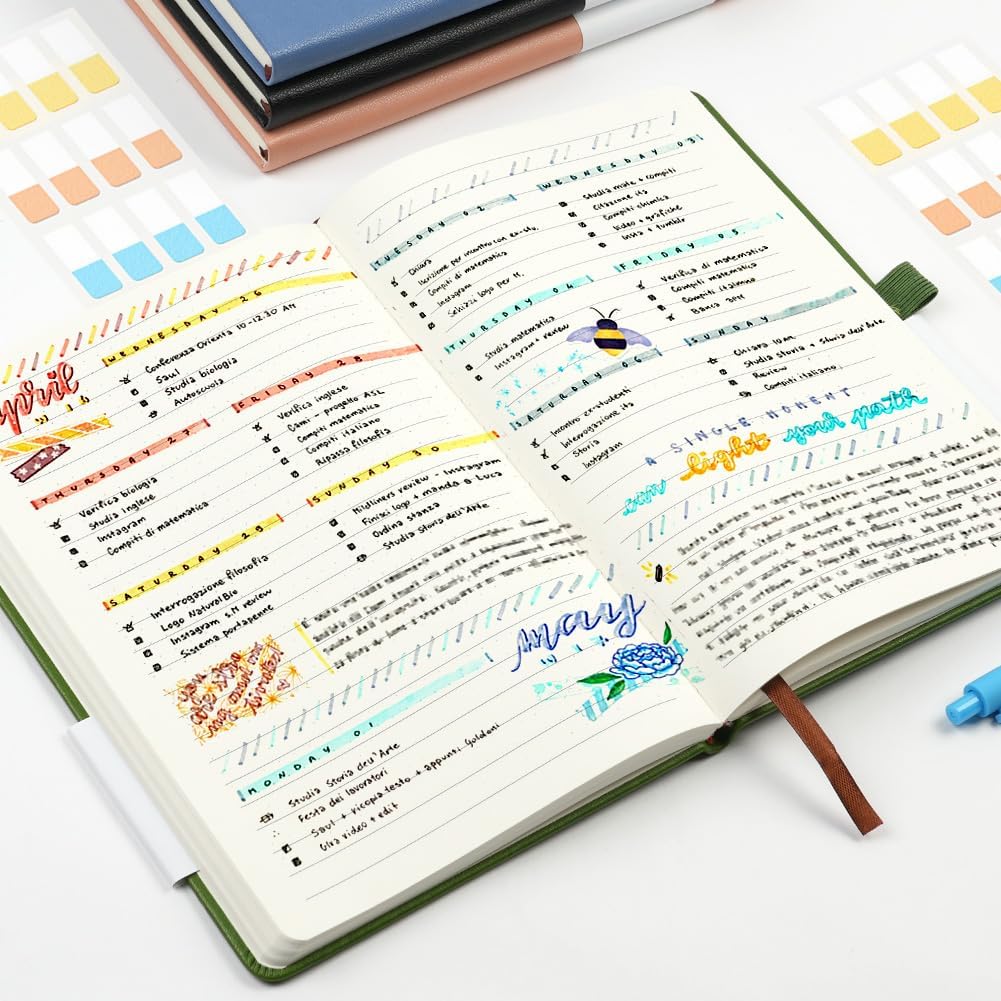 april
WEDNESDAY 26
Conferenza Orienta 10-12.30 AM
Saul
Studia biologia
Autoscuola
THURSDAY 27
Verifica biologia
Studia inglese
Instagram
Compiti di matematica
FRIDAY 28
Verifica inglese
Cami - progello ASL
Compiti matematica
Compiti italiano
Ripassa filosofia
SATURDAY 29
Interrogazione filosofia
Logo NaturalBio
Instagram S.M review
Sistema portapenne
SUNDAY 30
Midliners review - Instagram
Finisci logo + manda a Luca
Ordina stanza
Studia Storia dell'Arte
you
are
my own
may
MONDAY 01
Studia Storia dell'Arte
Festa dei lavoratori
Saul + ricopia testo + appunti Goldoni
Gira video + edit
TUESDAY 02
Chiara
Iscrizione per incontro con ex-stu.
Compiti di matematica
Instagram
Schizzi logo per M.
WEDNESDAY 03
Studia mate + compiti
Citazione ita
Compiti chimica
Video + grafiche
Insta + tumblr
THURSDAY 04
Studia matematica
Instagram + review
FRIDAY 05
Verifica di matematica
Compiti matematica
Compiti italiano
Banca
SATURDAY 06
Incontro ex-studenti
Interrogazione ita
Storia
Instagram
SUNDAY
Chiara 10am.
Studia Storia + Storia dell'Arte
Review
Compiti italiano.
A SINGLE MOMENT
can light your path